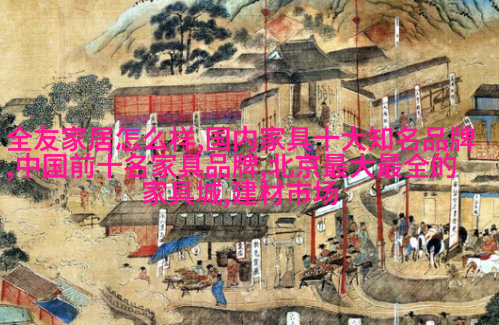 全友家居怎么样,国内家具十大知名品牌
,中国前十名家具品牌,北京最大最全的
家具城,建材市场